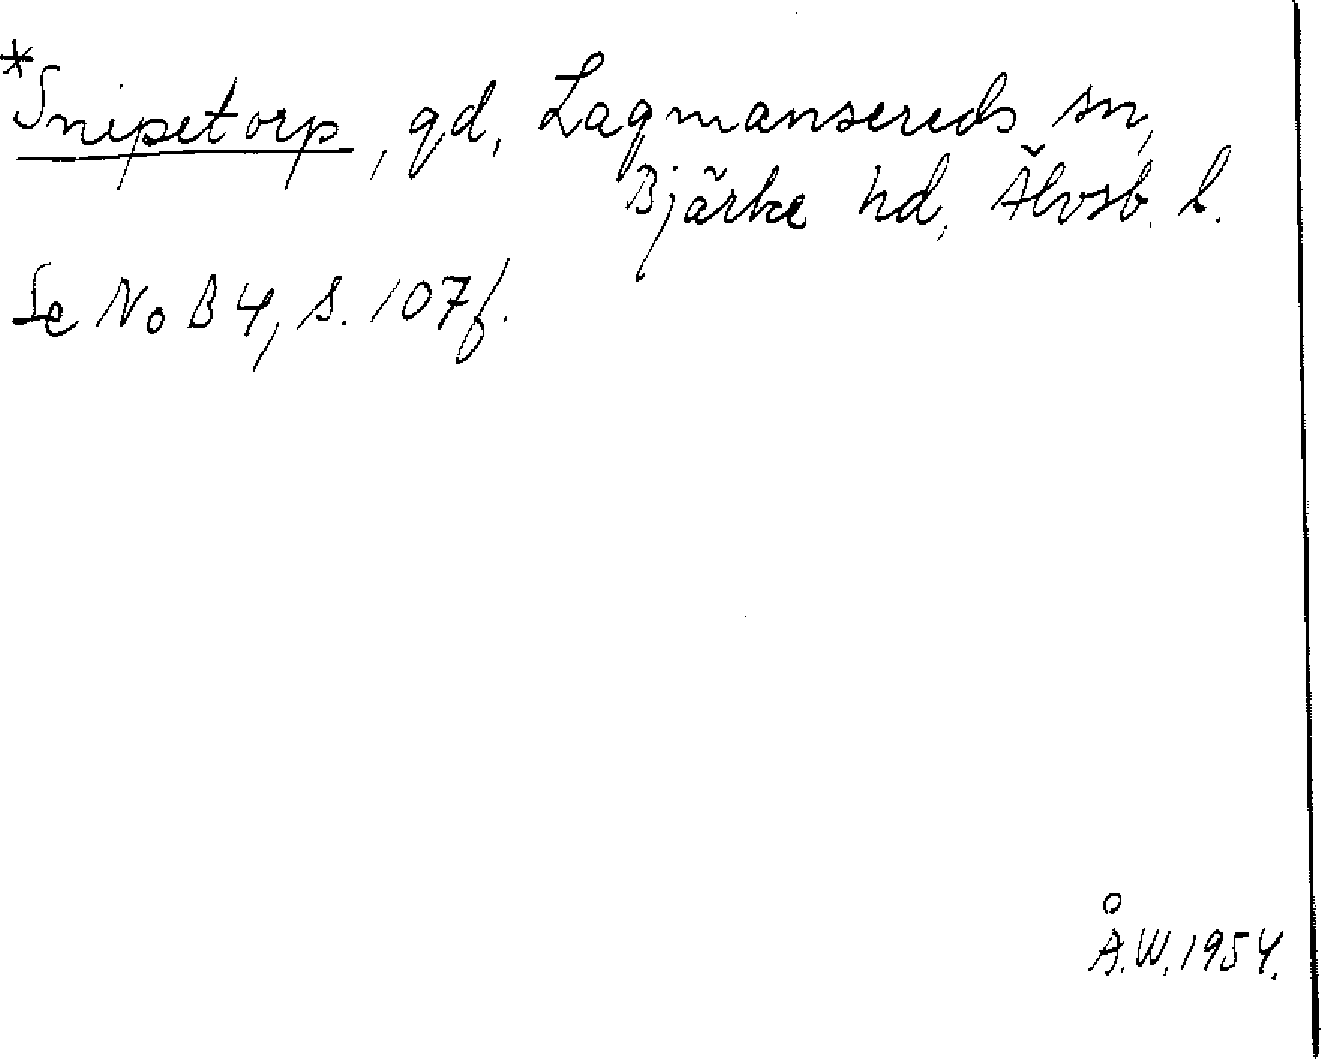 *Snipetorp, gd, Lagmansereds sn,
Bjärke hd, Älvsb. l.
Se No B 4, s. 107 f.
Å.W. 1954.